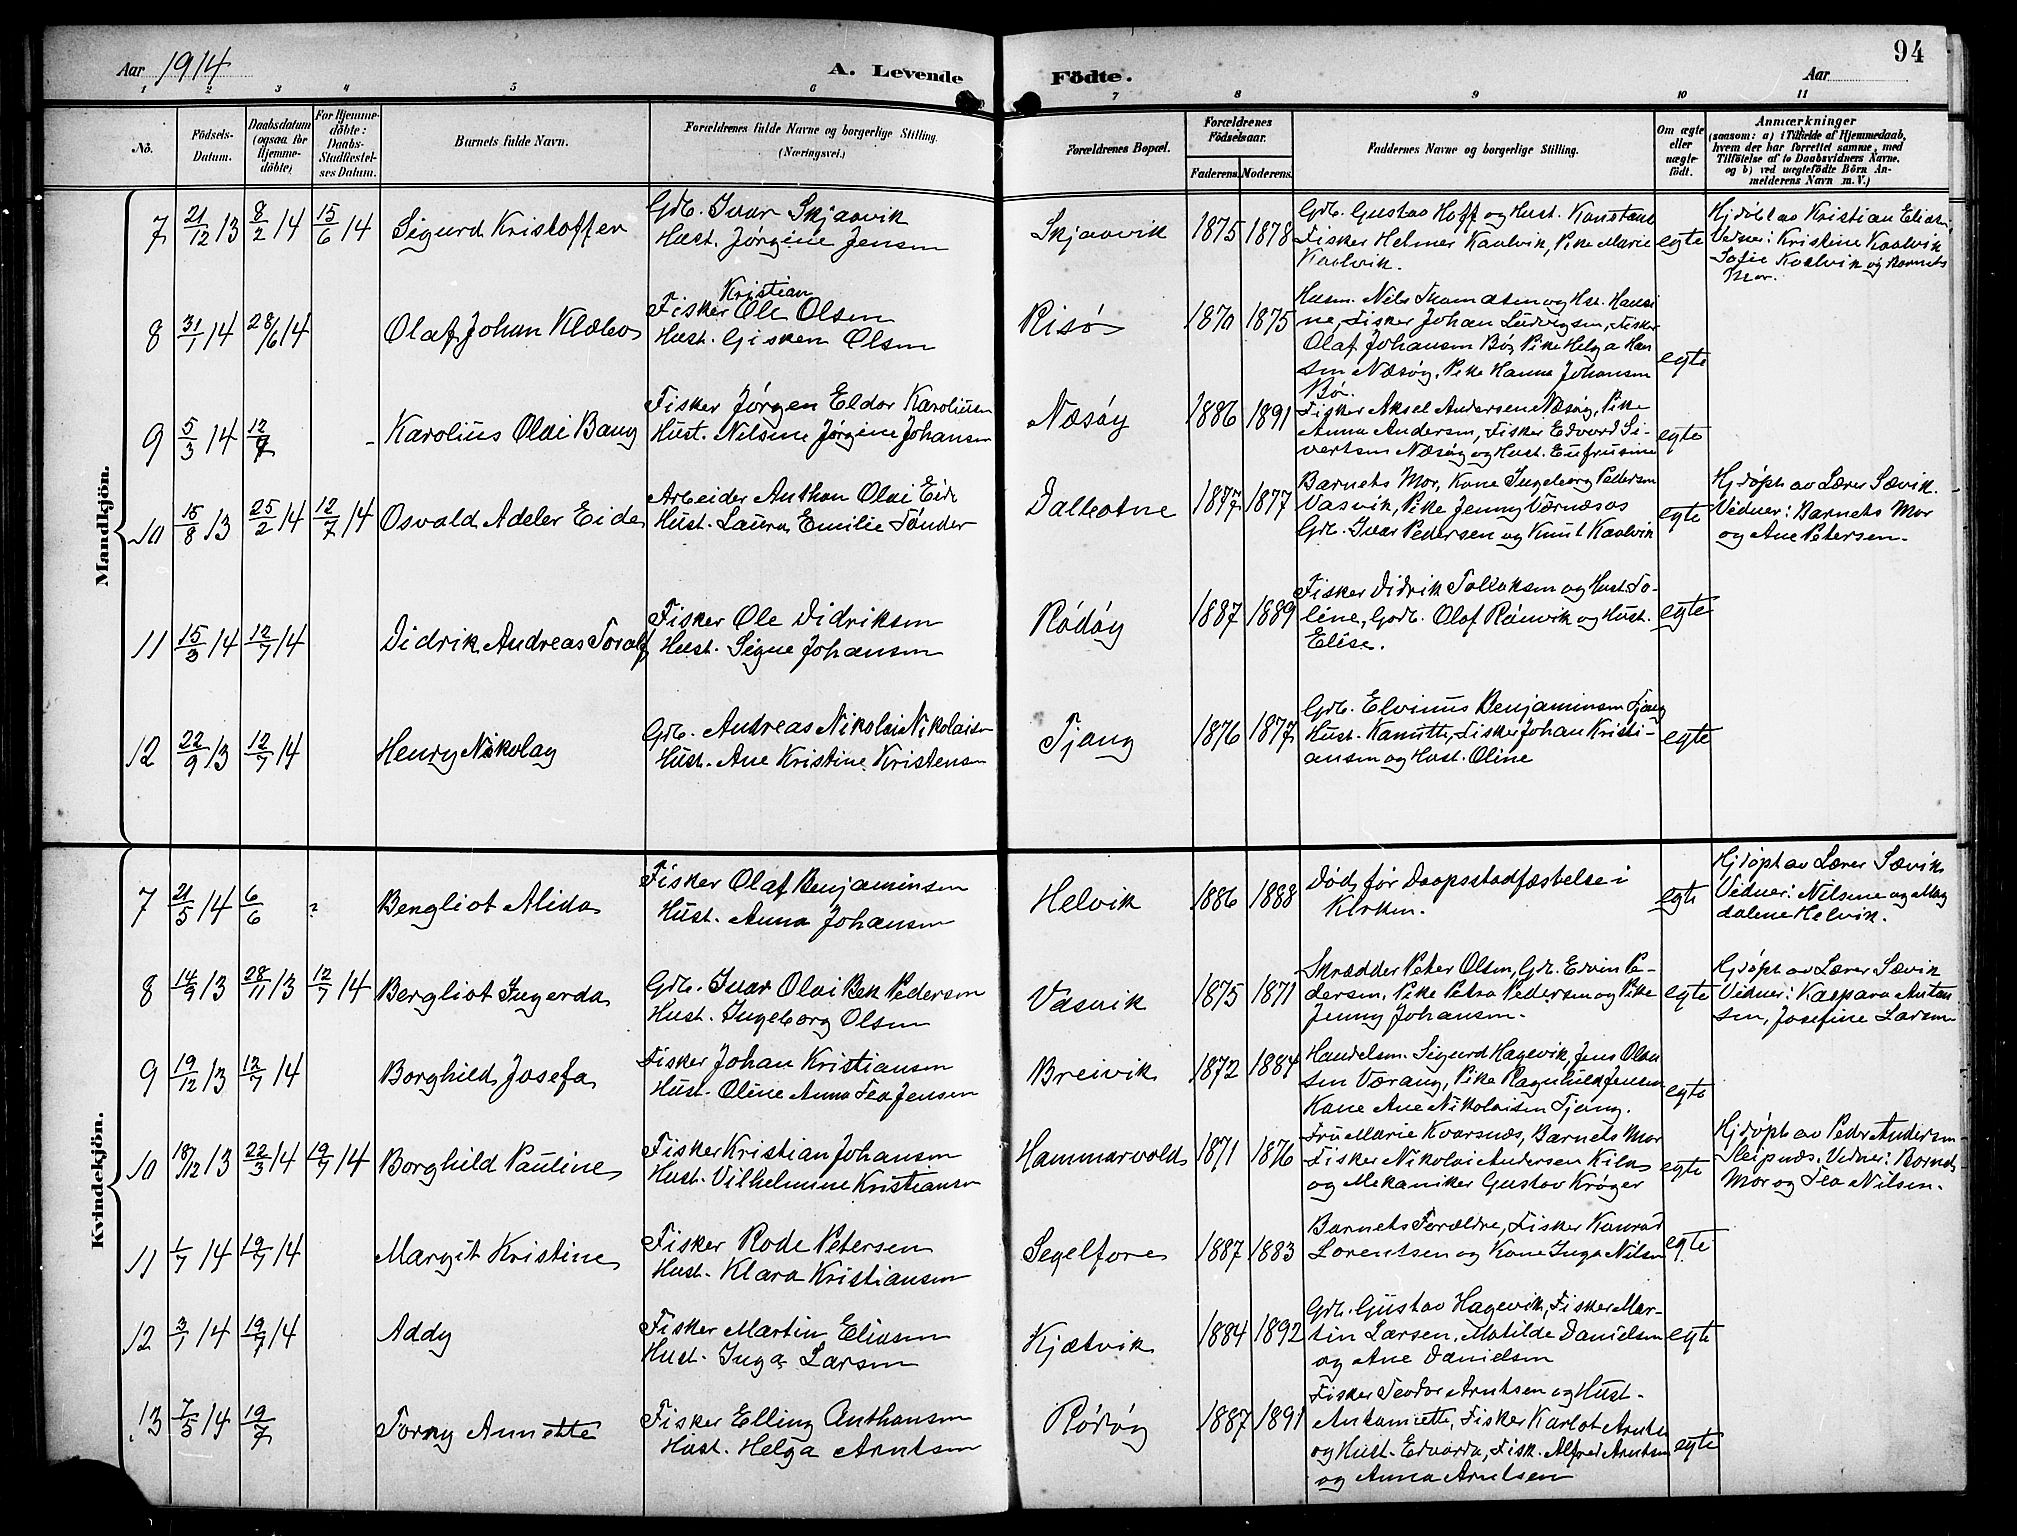 Aar 1914
A. Levende Födte.
Aar
94
1 2 3 4 5 6 7 8 9 10 11
No.
Födsels-Datum.
Daabsdatum (ogsaa for Hjemmedöbte)
For Hjemmedöbte: Daabs-Stadfæstelses Datum.
Barnets fulde Navn.
Forældrenes fulde Navne og borgerlige Stilling. (Næringsvei.)
Forældrenes Bopæl.
Forældrenes Födselsaar.
Faderens. Moderens.
Faddernes Navne og borgerlige Stilling.
Om ægte eller uægte födt.
Anmærkninger
(saasom: a) i Tilfælde af Hjemmedaab,
hvem der har forrettet samme, med
Tilföielse af to Daabsvidners Navne,
og b) ved uægtefödte Börn Anmelderens Navn m. V.)
Mandkjön.
7 21/12 13 8/2 14 15/6 14 Sigurd Kristoffer
Gdb. Ivar Skjaavik
Hust. Jørgine Jensen
Skjaavik 1875 1878
Gdb. Gustav Hoff og Hust. Konstanse
Fisker Helmer Kaalvik, Pike Marie
Kaalvik.
egte
Hjdøbt av Kristian Elias
Vidner: Kristine Kaalvik
Sofie Kaalvik og Barnets
Mor.
8 31/1 14 28/6 14 Olaf Johan Klæbo
Kristian
Fisker Ole Olsen
Hust. Gisken Olsen
Risø 1870 1875
Husm. Nils Thomasen og Hst. Hansi
ne, Fisker Johan Ludvigsen, Fisker
Olaf Johansen Bø, Pike Helga Han
sen Næsøy, Pike Hanna Johansen
Bø.
egte
9 5/3 14 12/7 - Karolius Olai Bang
Fisker Jørgen Eldor Karoliusen
Hust. Nilsine Jørgine Johansen
Næsøy 1886 1891
Fisker Aksel Andersen Næsøy, Pike
Anna Andersen, Fisker Edvard Si-
vertsen Næsøy og Hust. Eufrusine
egte
10 15/8 13 25/2 14 12/7 14 Osvald Adeler Eide
Arbeider Anthon Olai Eide
Hust. Laura Emilie Tønder
Dalbotne 1877 1877
Barnets Mor, Kone Ingeborg Pedersen
Vasvik, Pike Jenny Værnæsos
Gdb. Ivar Pedersen og Knut Kaalvik
egte
Hjdøpt av Lærer Sævik.
Vidner: Barnets Mor
og Ane Petersen.
11 15/3 14 12/7 14 Didrik Andreas Toralf
Fisker Ole Didriksen
Hust. Signe Johansen
Rødøy 1887 1889
Fisker Didrik Tollaksen og Hust. To-
line, Gdb. Olaf Rønvik og Hust.
Elise.
egte
12 22/9 13 12/7 14 Henry Nikolay
Gdb. Andreas Nikolai Nikolaisen
Hust. Ane Kristine Kristensen
Tjong 1876 1877
Gdb. Elvinus Benjaminsen Tjong
Hust. Kanutte, Fisker Johan Kristi-
ansen og Hust. Oline
egte
Kvindekjön.
7 21/5 14 6/6 ? Bengliot Alida
Fisker Olaf Benjaminsen
Hust. Anna Johansen
Helvik 1886 1888
Død før Daapsstadfæstelse i
Kirken.
egte
Hjdøpt av Lærer Sævik
Vidner: Nilsine og Mag
dalene Helvik.
8 14/9 13 28/11 13 12/7 14 Bergliot Ingerda
Gdb. Ivar Olai Bek Pedersen
Hust. Ingeborg Olsen
Vasvik 1875 1871
Skrædder Peter Olsen, Gdb. Edvin Pe-
dersen, Pike Petra Pedersen og Pike
Jenny Johansen.
egte
Hjdøpt av Lærer Sævik
Vidner: Kaspara Anton
sen, Josefine Larsen
9 19/12 13 12/7 14 Borghild Josefa
Fisker Johan Kristiansen
Hust. Oline Anna Tea Jensen
Breivik 1872 1884
Handelsm. Sigurd Hagevik, Jens Olau
sen Værang, Pike Ragnhild Jensen
Kone Ane Nikolaisen Tjong.
egte
10 18/12 13 22/3 14 19/7 14 Borghild Pauline
Fisker Kristian Johansen
Hust. Vilhelmine Kristiansen
Hammarvold 1871 1876
Fru Marie Kvarsnæs, Barnets Mor
Fisker Nikolai Andersen Kila
og Mekaniker Gustav Krøger
egte
Hjdøpt av Peder Andersen
Sleipnæs. Vidner: Barnets
Mor og Tea Nilsen.
11 1/7 14 19/7 14 Margit Kristine
Fisker Rode Petersen
Hust. Klara Kristiansen
Segelfore 1887 1883
Barnets Forældre, Fisker Konrad
Lorentsen og Kone Inga Nilsen
egte
12 3/1 14 19/7 14 Addy
Fisker Martin Eliasen
Hust. Inga Larsen
Kjætvik 1884 1892
Gdb. Gustav Hagevik, Fisker Mar-
tin Larsen, Matilde Danielsen
og Ane Danielsen
egte
13 7/5 14 19/7 Torny Annette
Fisker Elling Anthonsen
Hust. Helga Arntsen
Rødøy 1887 1891
Fisker Teodor Arntsen og Hust.
Antonette, Fisker Karlot Arntsen
og Hust. Edvarda, Fisk. Alfred Arntsen
og Anna Arntsen
egte